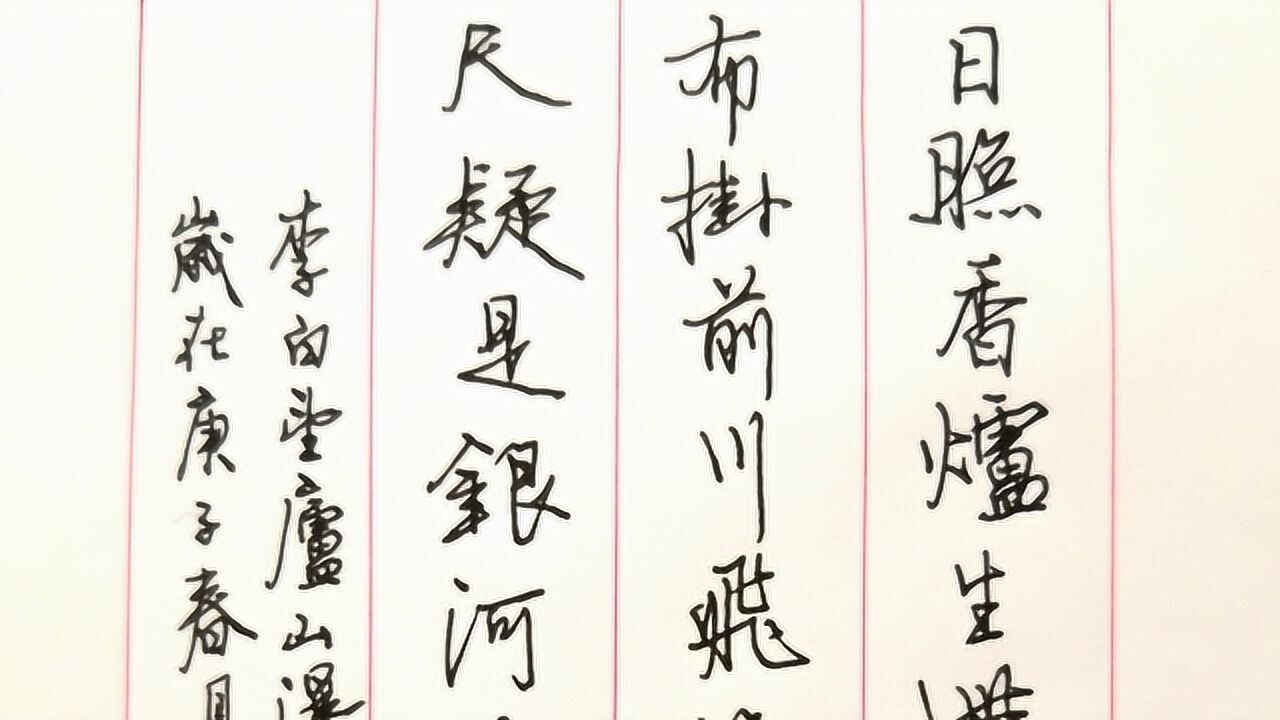 日照香爐生
布掛前川飛
尺疑是銀河
李白望廬山瀑
歲在庚子春月